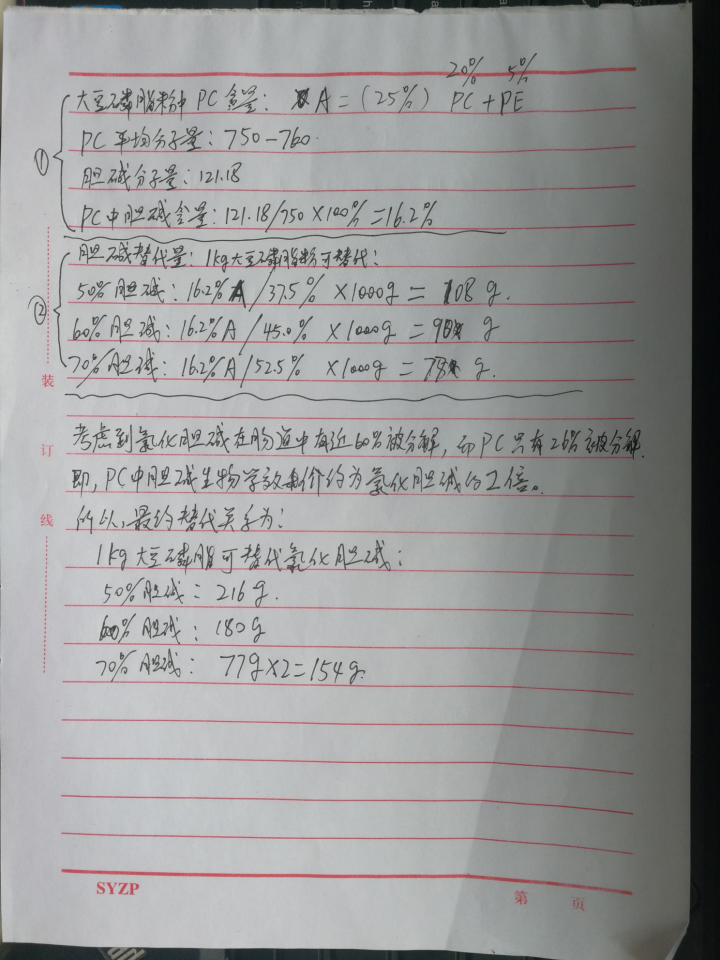 20% 5%
大豆磷脂粉中PC含量: A=(25%) PC+PE
① PC平均分子量:750-760.
胆碱分子量:121.18
PC中胆碱含量:121.18/750×100%=16.2%
胆碱替代量:1kg大豆磷脂粉可替代:
② 50%胆碱:16.2%A/37.5% ×1000g= 108 g.
60%胆碱:16.2%A/45.0% ×1000g=90 g
70%胆碱:16.2%A/52.5% ×1000g= g.
考虑到氯化胆碱在肠道中有近60%被分解,而PC只有26%被分解.
即,PC中胆碱生物学效价约为氯化胆碱的2倍。
所以,最终替代关系为:
1kg大豆磷脂可替代氯化胆碱:
50%胆碱: 216g.
60%胆碱: 180g
70%胆碱: 77g×2=154g.
装
订
线
SYZP
第 页